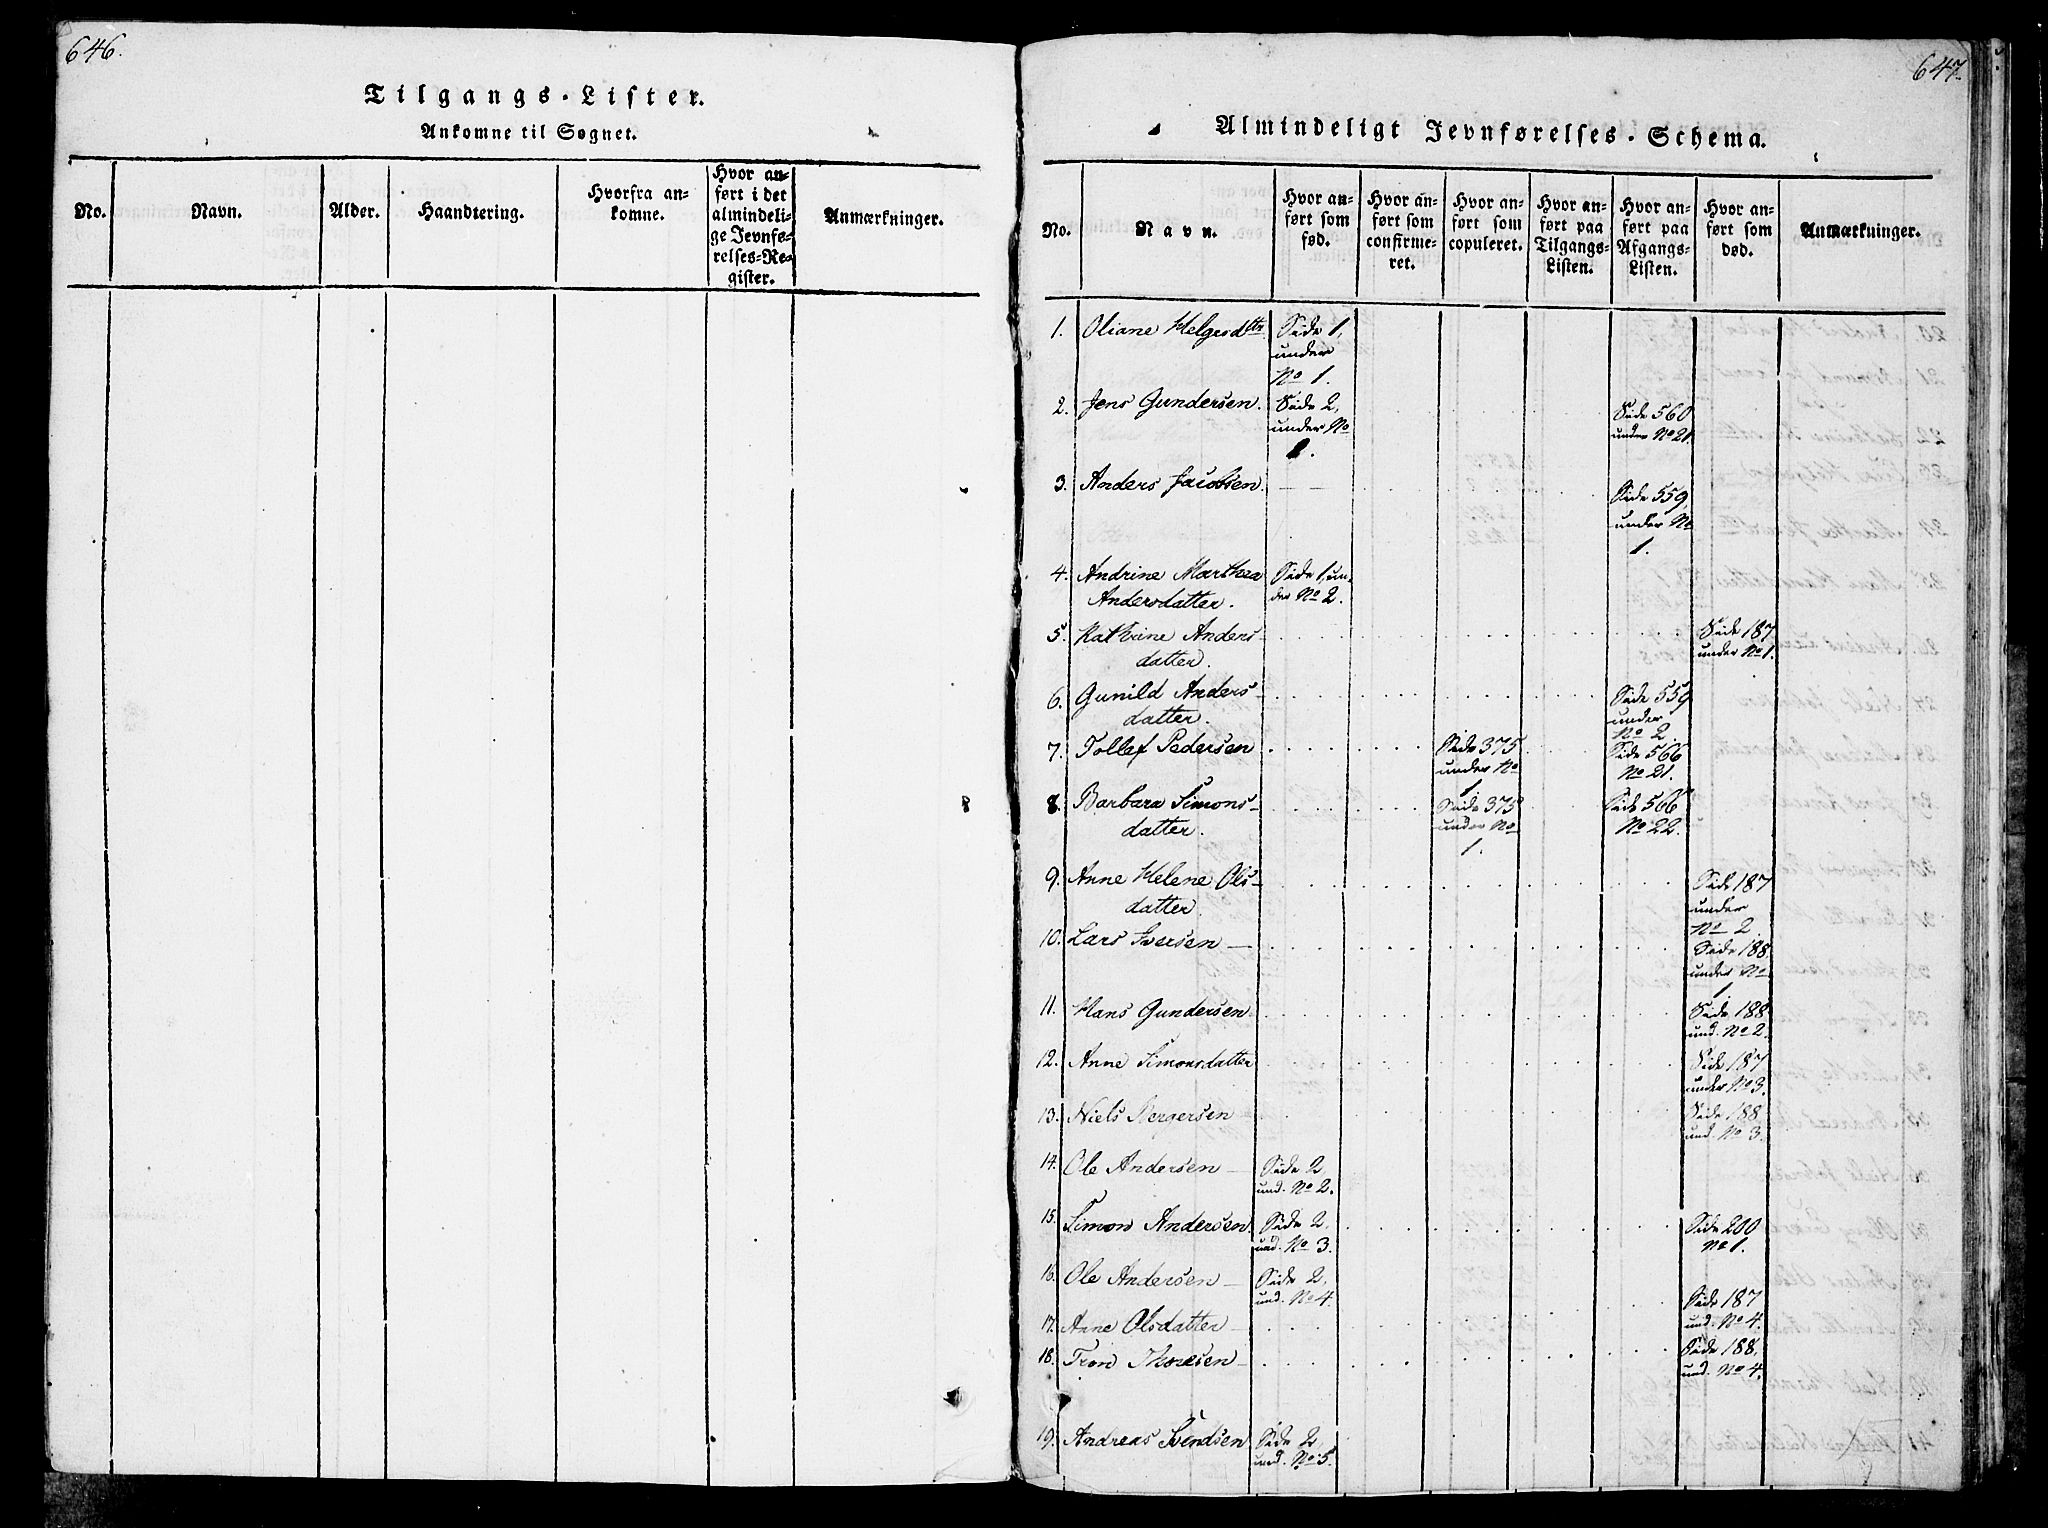 646.
Tilgangs-Lister.
Ankomne til Sognet.
No.
Navn.
Alder.
Haandtering.
Hvorfra an-
komne.
Hvor an-
ført i det
almindeli-
ge Jevnfø-
relses-Re-
gister.
Anmærkninger.
647.
Almindeligt Jevnførelses-Schema.
No.
Navn.
Hvor an-
ført som
fød.
Hvor an-
ført som
confirme-
ret.
Hvor an-
ført som
copuleret.
Hvor an-
ført paa
Tilgangs-
Listen.
Hvor an-
ført paa
Afgangs-
Listen.
Hvor an-
ført som
død.
Anmærkninger.
1. Oliane Helgesdttr Side 1,
under
No 1.
2. Jens Gundersen. Side 2, Side 560
under No under No 21.
1.
3. Anders Jacobsen. Side 559,
under No
1.
4. Andrine Marthea Side 1, un-
Andersdatter. der No 2.
5. Kathrine Anders- Side 187
datter. under No 1.
6. Gunild Anders- Side 559
datter. under
No 2.
7. Tollef Pedersen Side 375 Side 566
under No No 21.
1.
8. Barbara Simons- Side 375 Side 566
datter. under No No 22.
1.
9. Anne Helene Ols- Side 187
datter. under
No 2.
10. Lars Iversen Side 188
under No
1.
11. Hans Gundersen Side 188
und. No 2.
12. Anne Simonsdatter Side 187
under No 3.
13. Niels Bergersen Side 188
und. No 3.
14. Ole Andersen Side 2
und. No 2.
15. Simon Andersen Side 2, Side 200
und. No 3. No 1.
16. Ole Andersen Side 2,
und. No 4.
17. Anne Olsdatter Side 187
und. No 4.
18. Tron Thoresen Side 188,
und. No 4.
19. Andreas Svendsen Side 2
und. No 5.